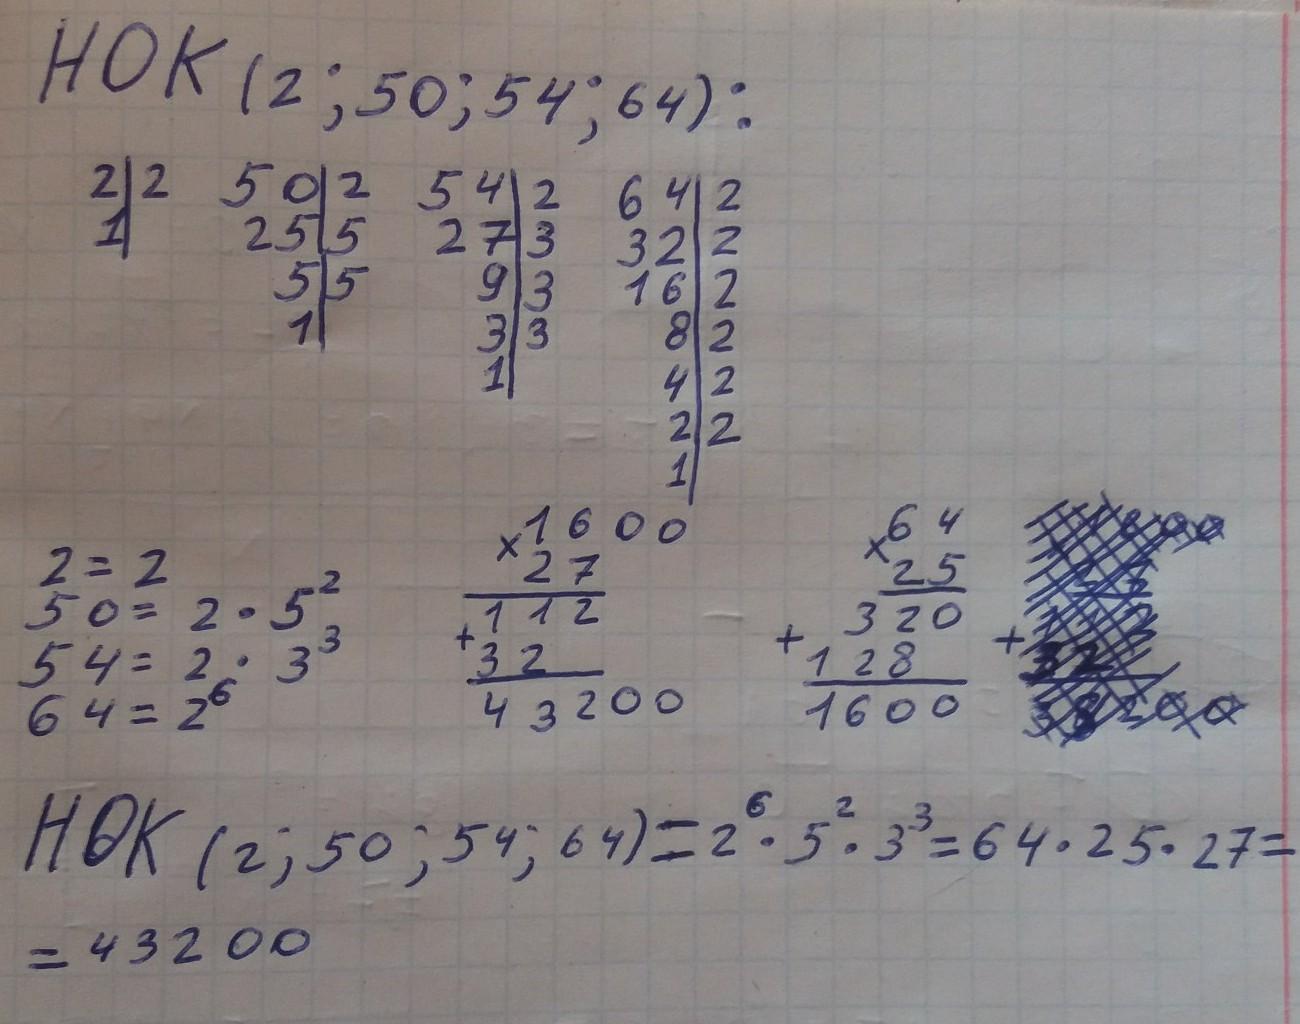 НОК (2; 50; 54; 64):
2|2 50|2 54|2 64|2
1| 25|5 27|3 32|2
5|5 9|3 16|2
1| 3|3 8|2
1| 4|2
2|2
1|
2 = 2
50 = 2 · 5²
54 = 2 · 3³
64 = 2⁶
×1600
27
112
+32
43200
×64
25
320
+128
1600
НОК (2; 50; 54; 64) = 2⁶ · 5² · 3³ = 64 · 25 · 27 =
= 43200